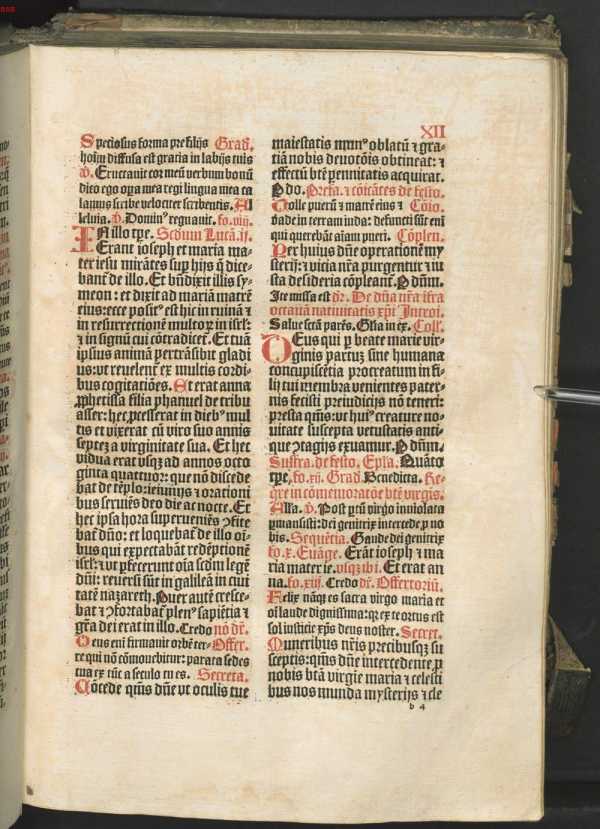 XII
Speciosus forma pre filijs Grad̄.
hoīm diffusa est gracia in labijs tuis
v̄. Eructauit cor meū verbum bonū
dico ego opa mea regi lingua mea ca
lamus scribe velociter scribentis. Al
leluia. v̄. Dominꝰ regnauit. fo. viij.
IN illo tꝑe. Scdum Lucā. ij.
Erant ioseph et maria ma-
ter iesu mirātes sup hijs q̄ dice-
banť de illo. Et bn̄dixit illis sy-
meon: et dixit ad mariā matrē
eius: ecce positꝰ est hic in ruinā ⁊
in resurrectionē multoꝝ in isrl̄:
⁊ in signū cui cōtradiceť. Et tuā
ipsius animā pertrāsibit gladi
us: vt reuelenť ex multis cordi
bus cogitatiōes. Et erat anna
ꝓphetissa filia phanuel de tribu
asser: hec ꝓcesserat in diebꝰ mul
tis et vixerat cū viro suo annis
septez a virginitate sua. Et hec
vidua erat vsqꝫ ad annos octo
ginta quattuor: que nō discede
bat de tēplo: ieiunijs ⁊ orationi
bus seruiēs deo die ac nocte. Et
hec ipsa hora superueniēs ꝯfite
bať dn̄o: et loquebať de illo oī-
bus qui expectabāt redēptionē
isrl̄: ⁊ vt ꝑfecerunt oīa scdm legē
dn̄i: reuersi sūt in galileā in ciui
tatē nazareth. Puer autē cresce-
bat ⁊ ꝯfortabať plenꝰ sapiētia ⁊
grā dei erat in illo. Credo nō dr̄.
Deus eni firmauit orbē ter- Offer.
re qui nō cōmouebitur: parata sedes
tua ex tūc a seculo tu es. Secreta.
Cōcede qsum̄s dn̄e vt oculis tue
maiestatis munꝰ oblatū ⁊ gra-
tiā nobis deuotōis obtineat: ⁊
effectū bt̄e ꝑennitatis acquirat.
P do. Prefa. ⁊ cōicātes de festo.
Tolle puerū ⁊ matrē eius ⁊ Cōio.
vade in terram iuda: defuncti sūt eni
qui querebāt aīam pueri. Cōplen.
Per huius dn̄e operationē my
sterij: ⁊ vicia nr̄a purgentur ⁊ iu
sta desideria cōpleanť. P dn̄m.
Ite missa est dr̄. De dn̄a nr̄a ifra
octauā natiuitatis xp̄i Introi.
Salue sctā parēs. Glīa in ex. Coll.
DEus qui ꝑ beate marie vir-
ginis partuꝫ sine humana
concupiscētia procreatum in fi-
lij tui membra venientes pater-
nis fecisti preiudicijs nō teneri:
presta qsum̄s: vt huiꝰ creature no-
uitate suscepta vetustatis anti-
que ꝯtagijs exuamur. P dn̄m.
Suffra. de festo. Epl̄a. Quāto
tꝑe. fo. xij. Grad̄. Benedicta. Re-
q̄re in cōmemoratōe bt̄e v̄gis.
Alla. v̄. Post ꝑtū virgo inuiolata
ꝑmansisti: dei genitrix intercede ꝓ no
bis. Sequētia. Gaude dei genitrix
fo. x. Euāge. Erāt ioseph ⁊ ma
ria mater ie. vsqꝫ ibi. Et erat an
na. fo. xij. Credo dr̄. Offertoriū.
Felix nāqꝫ es sacra virgo maria et
oī laude dignissima: qꝛ ex te ortus est
sol iusticie xp̄s deus noster. Secret.
Muneribus nr̄is precibusqꝫ su
sceptis: qsum̄s dn̄e intercedente ꝓ
nobis bt̄a virgīe maria ⁊ celesti
bus nos munda mysterijs ⁊ cle
b 4